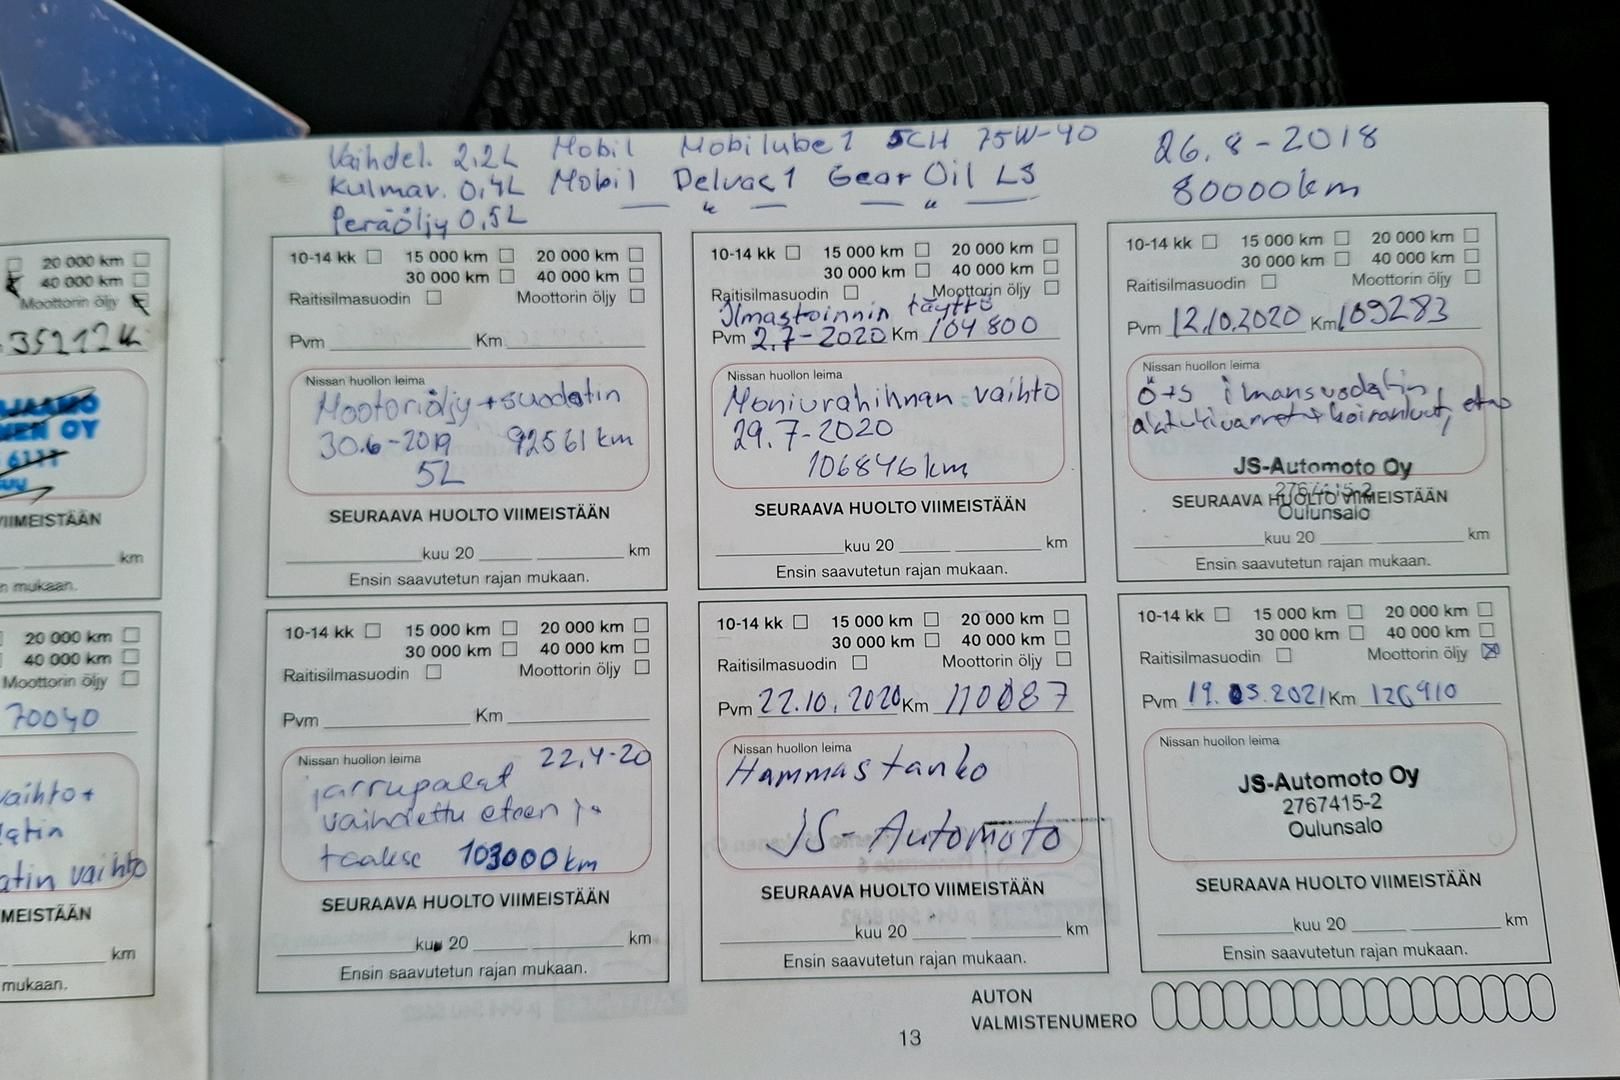 Vaihdel. 2,2L Mobil Mobilube 1 SCH 75W-90
Kulmav. 0,4L Mobil Delvac 1 Gear Oil LS
Peräöljy 0,5L — " — — " —
26.8-2018
80000km
20 000 km
40 000 km
Moottorin öljy
35212
OY
6117
VIIMEISTÄÄN
km
n mukaan.
20 000 km
40 000 km
Moottorin öljy
70040
vaihto+
atin vaihto
MEISTÄÄN
km
mukaan.
10-14 kk 15 000 km 20 000 km
30 000 km 40 000 km
Raitisilmasuodin Moottorin öljy
Pvm Km
Nissan huollon leima
Mootoriöljy + suodatin
30.6-2019 92561 km
5L
SEURAAVA HUOLTO VIIMEISTÄÄN
kuu 20 km
Ensin saavutetun rajan mukaan.
10-14 kk 15 000 km 20 000 km
30 000 km 40 000 km
Raitisilmasuodin Moottorin öljy
Ilmastoinnin täyttö
Pvm 2.7-2020 Km 104 800
Nissan huollon leima
Moniurahihnan vaihto
29.7-2020
106846 km
SEURAAVA HUOLTO VIIMEISTÄÄN
kuu 20 km
Ensin saavutetun rajan mukaan.
10-14 kk 15 000 km 20 000 km
30 000 km 40 000 km
Raitisilmasuodin Moottorin öljy
Pvm 12.10.2020 Km 109283
Nissan huollon leima
Ö+S ilmansuodatin,
alatukivarret+koiranluut, etu
JS-Automoto Oy
2767415-2
SEURAAVA HUOLTO VIIMEISTÄÄN
Oulunsalo
kuu 20 km
Ensin saavutetun rajan mukaan.
10-14 kk 15 000 km 20 000 km
30 000 km 40 000 km
Raitisilmasuodin Moottorin öljy
Pvm Km
Nissan huollon leima 22.4-20
jarrupalat
vaihdettu eteen ja
taakse 103000 km
SEURAAVA HUOLTO VIIMEISTÄÄN
kuu 20 km
Ensin saavutetun rajan mukaan.
10-14 kk 15 000 km 20 000 km
30 000 km 40 000 km
Raitisilmasuodin Moottorin öljy
Pvm 22.10.2020 Km 110087
Nissan huollon leima
Hammastanko
JS-Automoto
SEURAAVA HUOLTO VIIMEISTÄÄN
kuu 20 km
Ensin saavutetun rajan mukaan.
10-14 kk 15 000 km 20 000 km
30 000 km 40 000 km
Raitisilmasuodin Moottorin öljy
Pvm 19.05.2021 Km 126910
Nissan huollon leima
JS-Automoto Oy
2767415-2
Oulunsalo
SEURAAVA HUOLTO VIIMEISTÄÄN
kuu 20 km
Ensin saavutetun rajan mukaan.
AUTON
VALMISTENUMERO
13